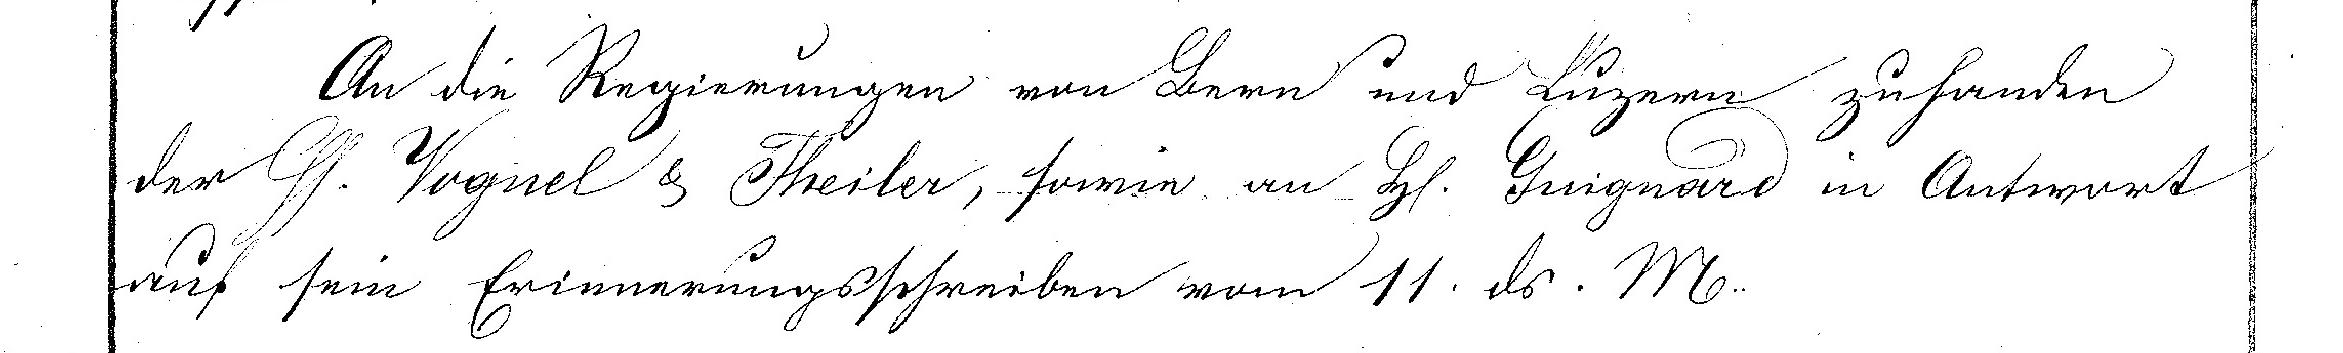 An die Regierungen von Bern und Luzern zuhanden
der HH. Vognel & Theiler, sowie an H. Guignard in Antwort
auf sein Erinnerungsschreiben vom 11. ds. M.